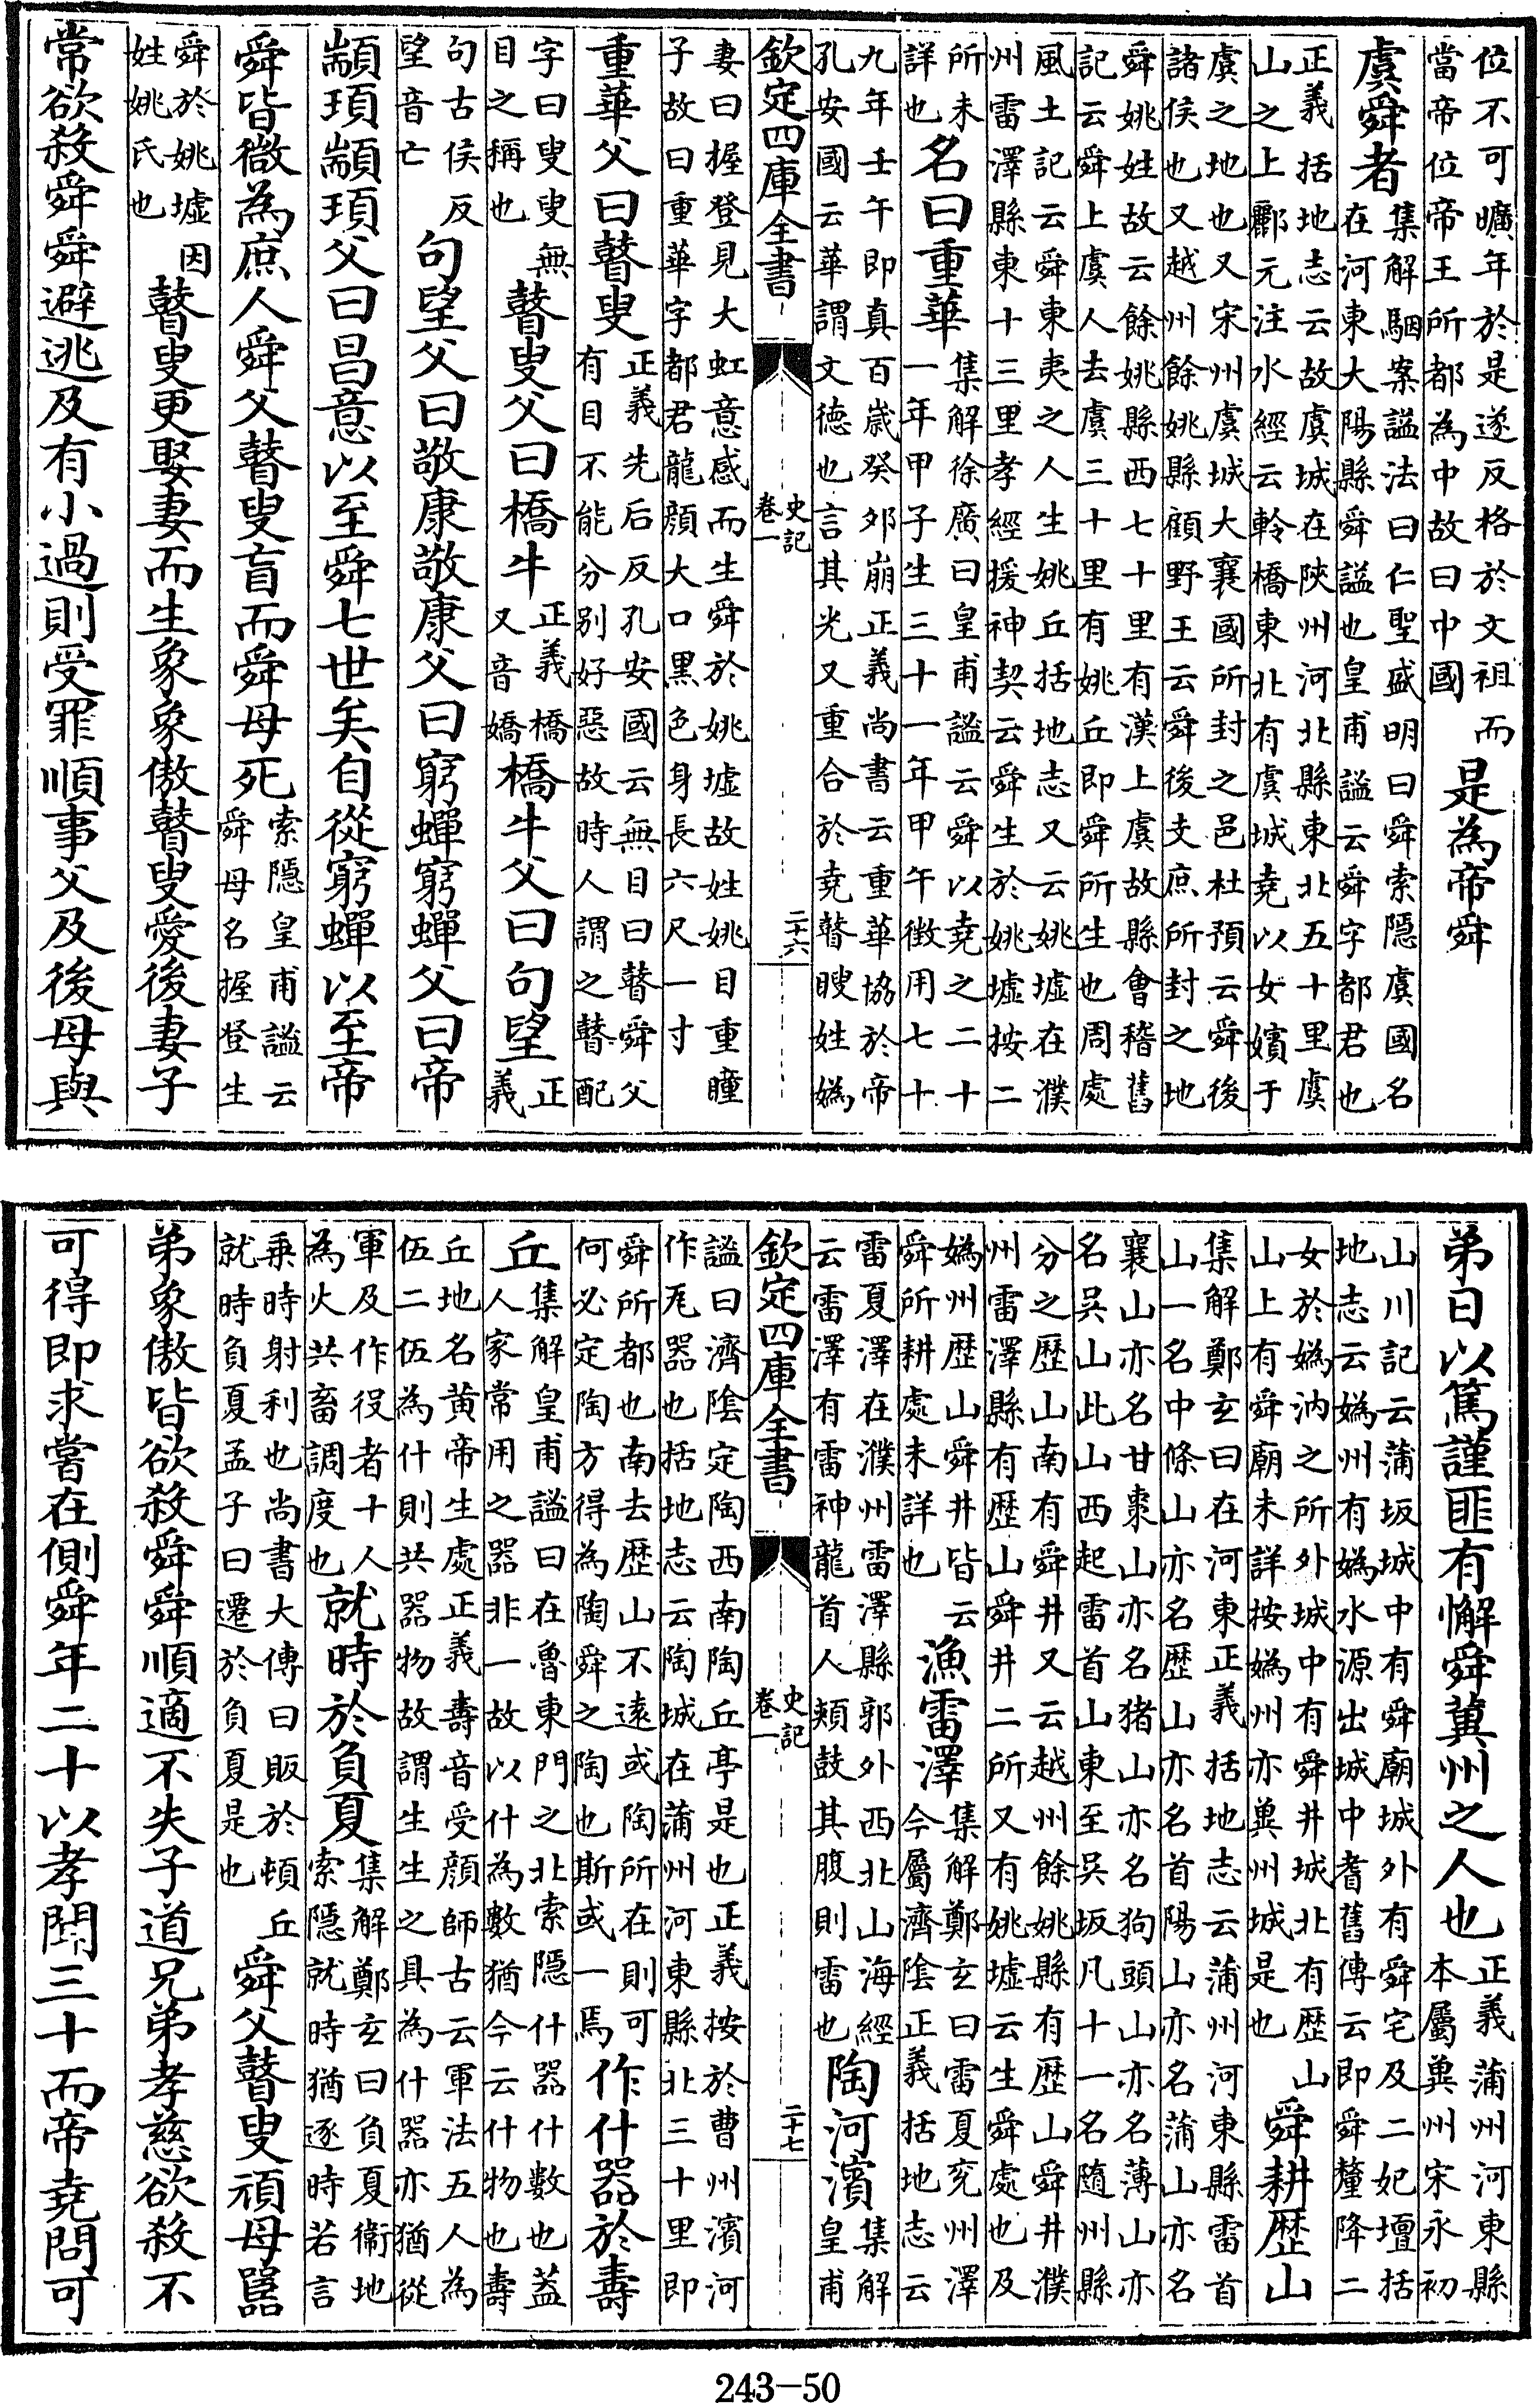 位不可曠年於是遂反格於文祖而當帝位帝王所都為中故曰中國是為帝舜
虞舜者集解駰案謚法曰仁聖盛明曰舜索隱虞國名在河東大陽縣舜謚也皇甫謐云舜字都君也
正義括地志云故虞城在陜州河北縣東北五十里虞山之上酈元注水經云軨橋東北有虞城堯以女嬪于
虞之地也又宋州虞城大襄國所封之邑杜預云舜後諸侯也又越州餘姚縣顧野王云舜後支庶所封之地
舜姚姓故云餘姚縣西七十里有漢上虞故縣會稽舊記云舜上虞人去虞三十里有姚丘即舜所生也周處
風土記云舜東夷之人生姚丘括地志又云姚墟在濮州雷澤縣東十三里孝經援神契云舜生於姚墟按二
所未詳也名曰重華集解徐廣曰皇甫謐云舜以堯之二十一年甲子生三十一年甲午徵用七十
九年壬午即真百歲癸卯崩正義尚書云重華協於帝孔安國云華謂文德也言其光又重合於堯瞽瞍姓媯
欽定四庫全書 史記卷一 二十六
妻曰握登見大虹意感而生舜於姚墟故姓姚目重瞳子故曰重華字都君龍顏大口黑色身長六尺一寸
重華父曰瞽叟正義先后反孔安國云無目曰瞽舜父有目不能分別好惡故時人謂之瞽配
字曰叟叟無目之稱也瞽叟父曰橋牛正義橋又音嬌橋牛父曰句望正義
句古侯反望音亡句望父曰敬康敬康父曰窮蟬窮蟬父曰帝
顓頊顓頊父曰昌意以至舜七世矣自從窮蟬以至帝
舜皆微為庶人舜父瞽叟盲而舜母死索隱皇甫謐云舜母名握登生
舜於姚墟因姓姚氏也瞽叟更娶妻而生象象傲瞽叟愛後妻子
常欲殺舜舜避逃及有小過則受罪順事父及後母與
弟日以篤謹匪有懈舜冀州之人也正義蒲州河東縣本屬冀州宋永初
山川記云蒲坂城中有舜廟城外有舜宅及二妃壇括地志云媯州有媯水源出城中耆舊傳云即舜釐降二
女於媯汭之所外城中有舜井城北有歷山山上有舜廟未詳按媯州亦冀州城是也舜耕歷山
集解鄭玄曰在河東正義括地志云蒲州河東縣雷首山一名中條山亦名歷山亦名首陽山亦名蒲山亦名
襄山亦名甘棗山亦名猪山亦名狗頭山亦名薄山亦名吳山此山西起雷首山東至吳坂凡十一名隨州縣
分之歷山南有舜井又云越州餘姚縣有歷山舜井濮州雷澤縣有歷山舜井二所又有姚墟云生舜處也及
媯州歷山舜井皆云舜所耕處未詳也漁雷澤集解鄭玄曰雷夏兖州澤今屬濟陰正義括地志云
雷夏澤在濮州雷澤縣郭外西北山海經云雷澤有雷神龍首人頰鼓其腹則雷也陶河濱集解皇甫
謐曰濟陰定陶西南陶丘亭是也正義按於曹州濱河作瓦器也括地志云陶城在蒲州河東縣北三十里即
舜所都也南去歷山不遠或陶所在則可何必定陶方得為陶舜之陶也斯或一焉作什器於壽
丘集解皇甫謐曰在魯東門之北索隱什器什數也蓋人家常用之器非一故以什為數猶今云什物也壽
丘地名黄帝生處正義壽音受顔師古云軍法五人為伍二伍為什則共器物故謂生生之具為什器亦猶從
軍及作役者十人為火共畜調度也就時於負夏集解鄭玄曰負夏衞地索隱就時猶逐時若言
乘時射利也尚書大傳曰販於頓丘就時負夏孟子曰遷於負夏是也舜父瞽叟頑母嚚
弟象傲皆欲殺舜舜順適不失子道兄弟孝慈欲殺不
可得即求嘗在側舜年二十以孝聞三十而帝堯問可
243-50